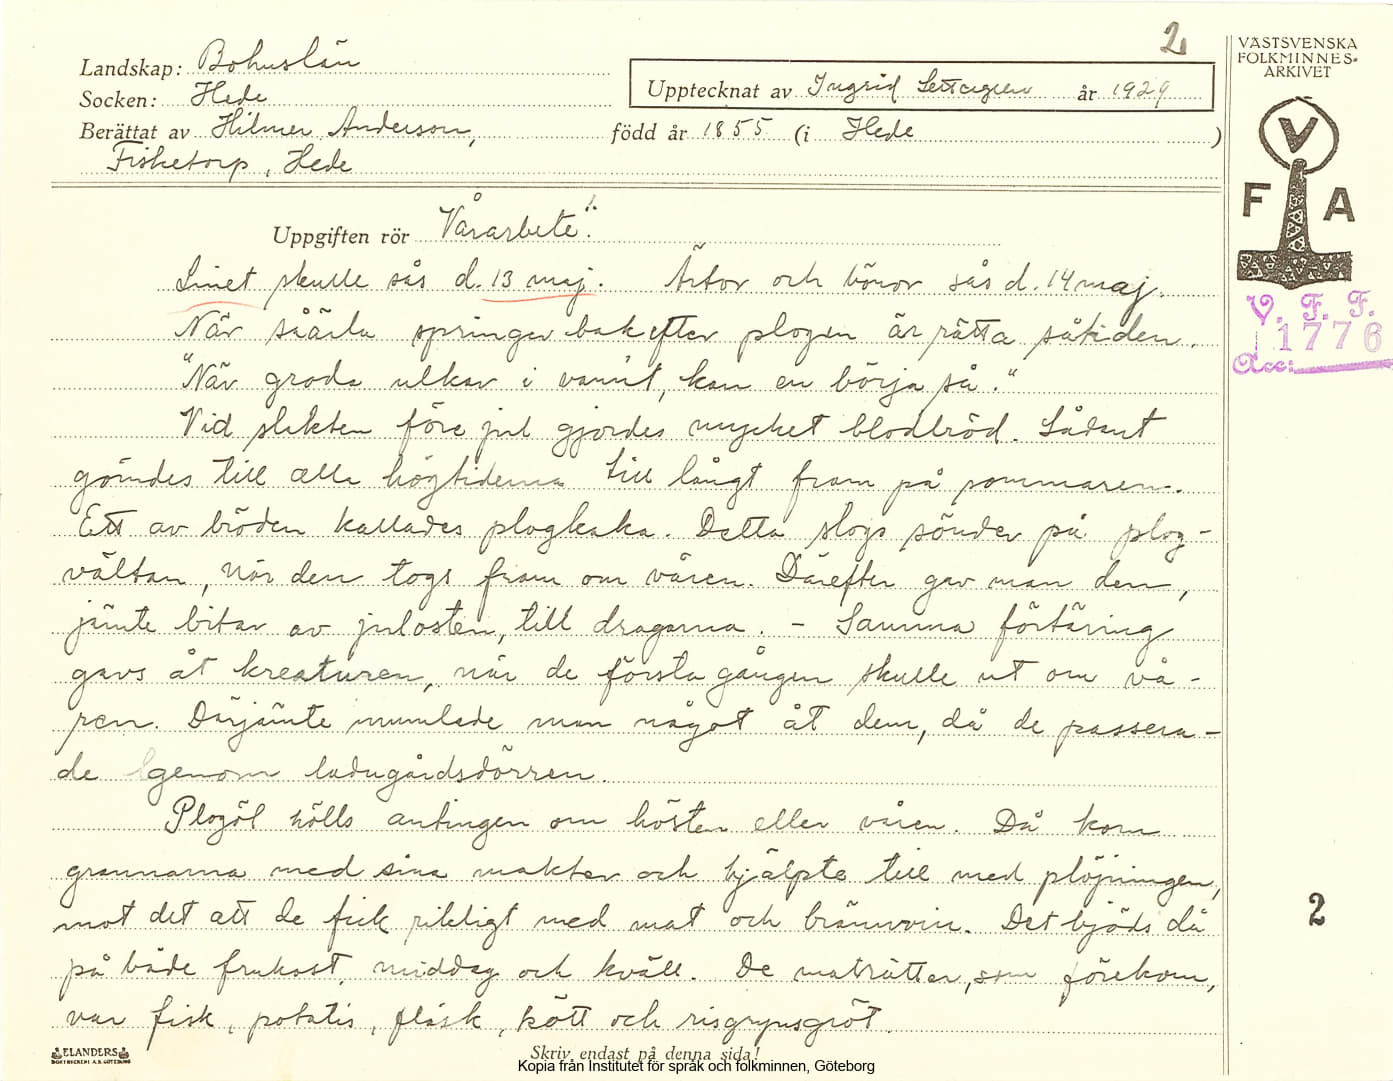 2
VÄSTSVENSKA
FOLKMINNES-
ARKIVET
Landskap: Bohuslän
Socken: Hede
Upptecknat av Ingrid år 1929
Berättat av Hilmer Anderson, född år 1855 (i Hede )
Fisketorp, Hede
V
F A
V. F. F.
1776
Acc:
Uppgiften rör Vårarbete".
Linet skulle sås d. 13 maj. Ärtor och bönor sås d. 14 maj.
När såärla springer bakefter plogen är rätta såtiden.
"När groda ulkar i vannt, kan en börja så."
Vid slakten före jul gjordes mycket blodbröd. Sådant
gömdes till alla högtiderna till långt fram på sommaren.
Ett av bröden kallades plogkaka. Detta slogs sönder på plog-
vältan, när den togs fram om våren. Därefter gav man den,
jämte bitar av julosten, till dragarna. - Samma förtäring
gavs åt kreaturen, när de första gången skulle ut om vå-
ren. Därjämte mumlade man något åt dem, då de passera-
de genom ladugårdsdörren.
Plogöl hölls antingen om hösten eller våren. Då kom
grannarna med sina makter och hjälpte till med plöjningen,
mot det att de fick rikligt med mat och brännvin. Det bjöds då
på både frukost, middag och kväll. De maträtter, som förekom,
var fisk, potatis, fläsk, kött och risgrynsgröt.
2
ELANDERS
BOKTRYCKERI A.B. GÖTEBORG
Skriv endast på denna sida!
Kopia från Institutet för språk och folkminnen, Göteborg